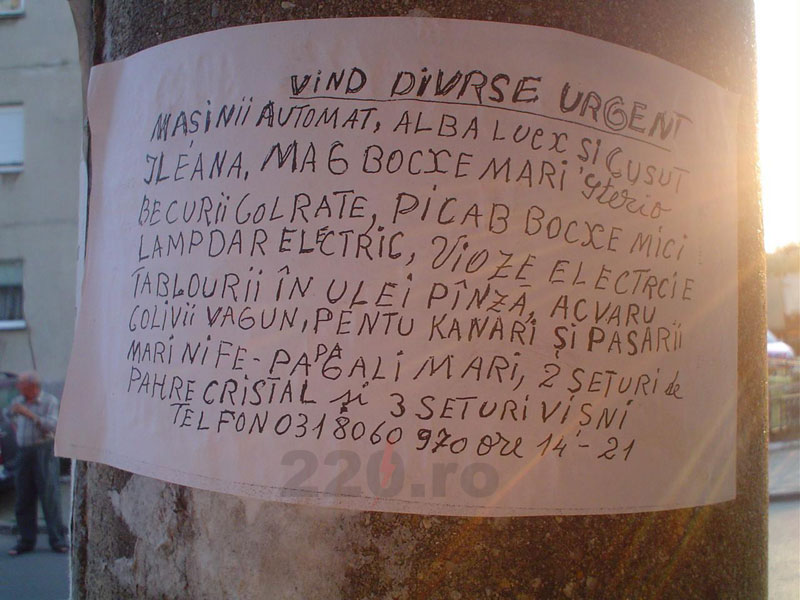 VIND DIVRSE URGENT
MAȘINII AUTOMAT, ALBA LUCX ȘI CUSUT
ILEANA, MAG BOCXE MARI ȘTERIO
BECURII COLRATE, PICAB BOCXE MICI
LAMPDAR ELECTRIC, VIOZE ELECTRCIE
TABLOURII ÎN ULEI PÎNZĂ, ACVARU
COLIVII VAGUN, PENTU KANARI ȘI PASĂRII
MARI NIFE-PAPAGALI MARI, 2 SETURI de
PAHRE CRISTAL și 3 SETURI VIȘNI
TELFON 031 8060 970 ore 14-21
220.ro